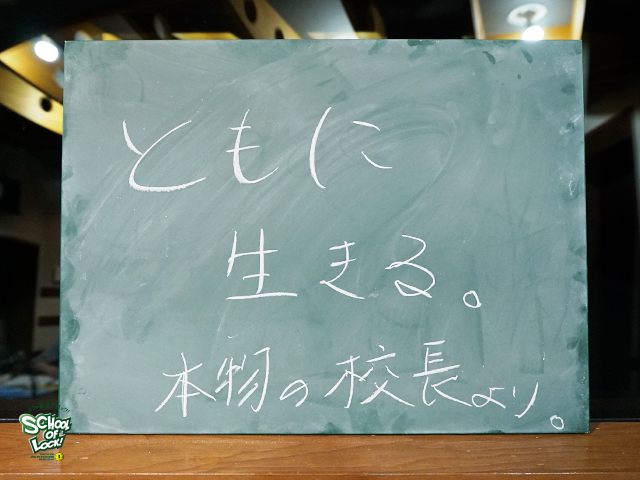 ともに
生きる。
本物の校長より。
SCHOOL
OF
LOCK!